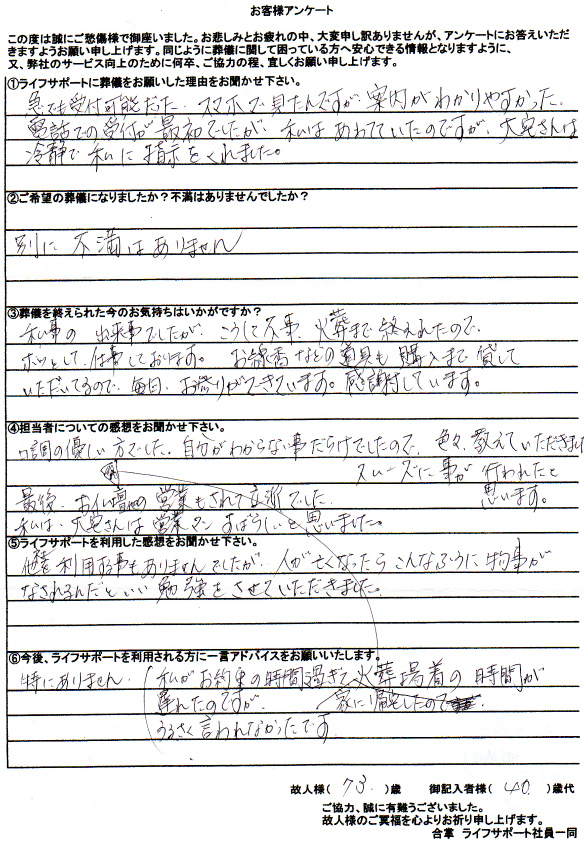 お客様アンケート
この度は誠にご愁傷様で御座いました。お悲しみとお疲れの中、大変申し訳ありませんが、アンケートにお答えいただ
きますようお願い申し上げます。同じように葬儀に関して困っている方へ安心できる情報となりますように、
又、弊社のサービス向上のために何卒、ご協力の程、宜しくお願い申し上げます。
①ライフサポートに葬儀をお願いした理由をお聞かせ下さい。
急でも受付可能だた。スマホで見たんですが案内がわかりやすかった。
電話での受付が最初でしたが、私はあわてていたのですが、大宛さんは
冷静で私に指示をくれました。
②ご希望の葬儀になりましたか？不満はありませんでしたか？
別に不満はありません
③葬儀を終えられた今のお気持ちはいかがですか？
私事の出来事でしたが、こうして無事、火葬まで終えれたので、
ホッとして、仕事しております。お線香などの道具も購入まで貸して
いただいてるので、毎日、お参りができています。感謝しています。
④担当者についての感想をお聞かせ下さい。
口調の優しい方でした。自分がわからない事だらけでしたので、色々、教えていただきまし
スムーズに事が行われたと
思います。
最後、お仏壇の営業もされて立派でした
私は、大宛さんは営業マンすばらしいと思いました。
⑤ライフサポートを利用した感想をお聞かせ下さい。
利用する事もありませんでしたが、人が亡くなったらこんなふうに物事が
なされるんだといい勉強をさせていただきました。
⑥今後、ライフサポートを利用される方に一言アドバイスをお願いいたします。
特にありません。
私がお約束の時間過ぎて火葬場着の時間が
遅れたのですが、
家に帰宅したので
うるさく言われなかったです
故人様( 73 )歳 御記入者様( 40 )歳代
ご協力、誠に有難うございました。
故人様のご冥福を心よりお祈り申し上げます。
合掌 ライフサポート社員一同